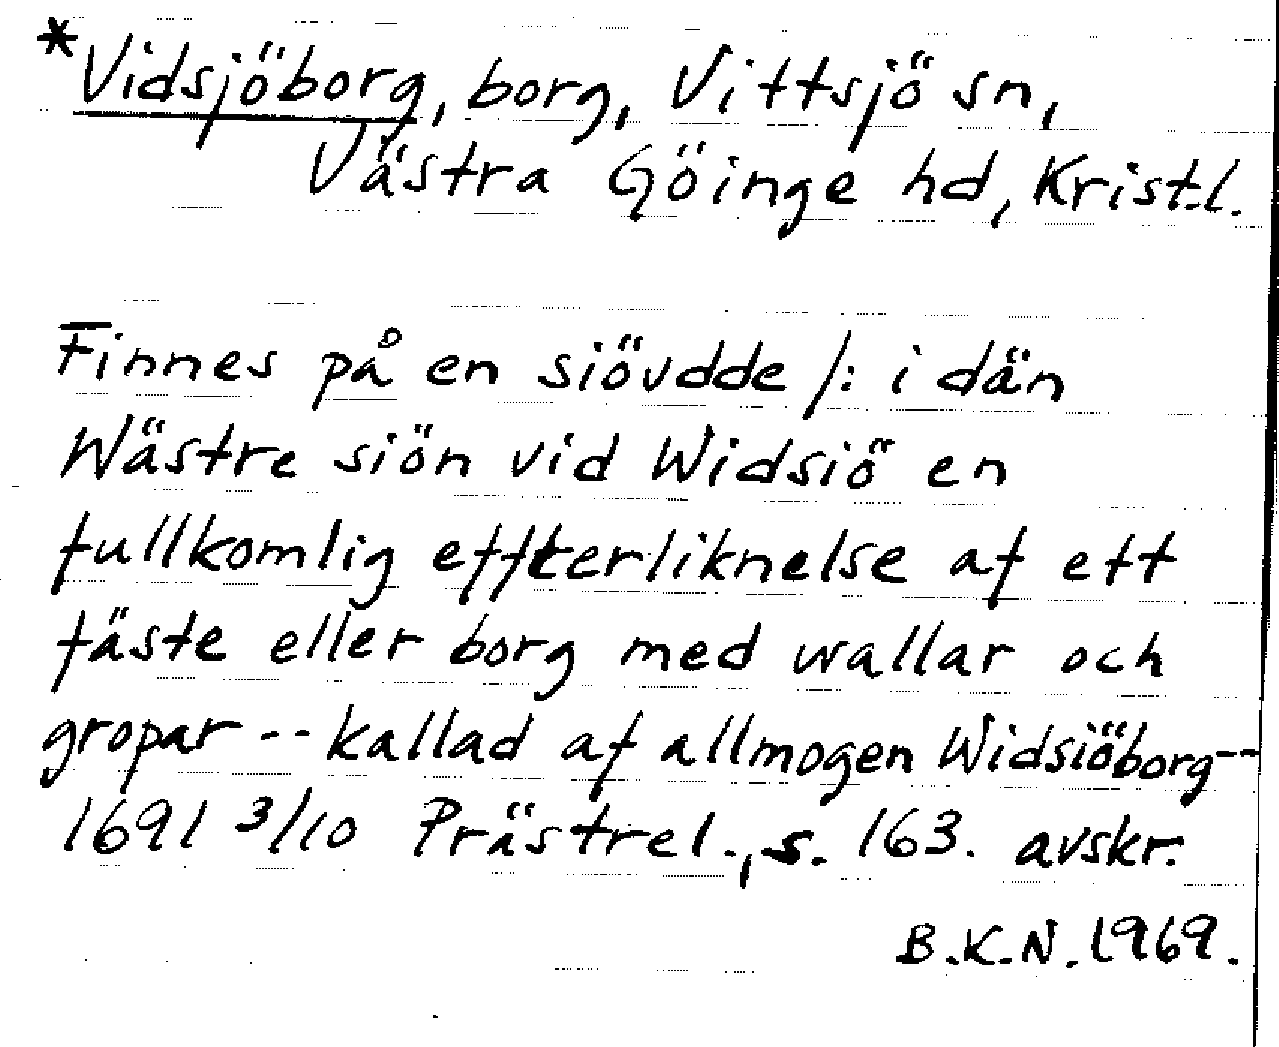 *Vidsjöborg, borg, Vittsjö sn,
Västra Göinge hd, Krist.l.
Finnes på en siövdde /: i dän
Wästre siön vid Widsiö en
fullkomlig effterliknelse af ett
fäste eller borg med wallar och
gropar -- kallad af allmogen Widsiöborg--
1691 3/10 Prästrel., s. 163. avskr.
B.K.N. 1969.